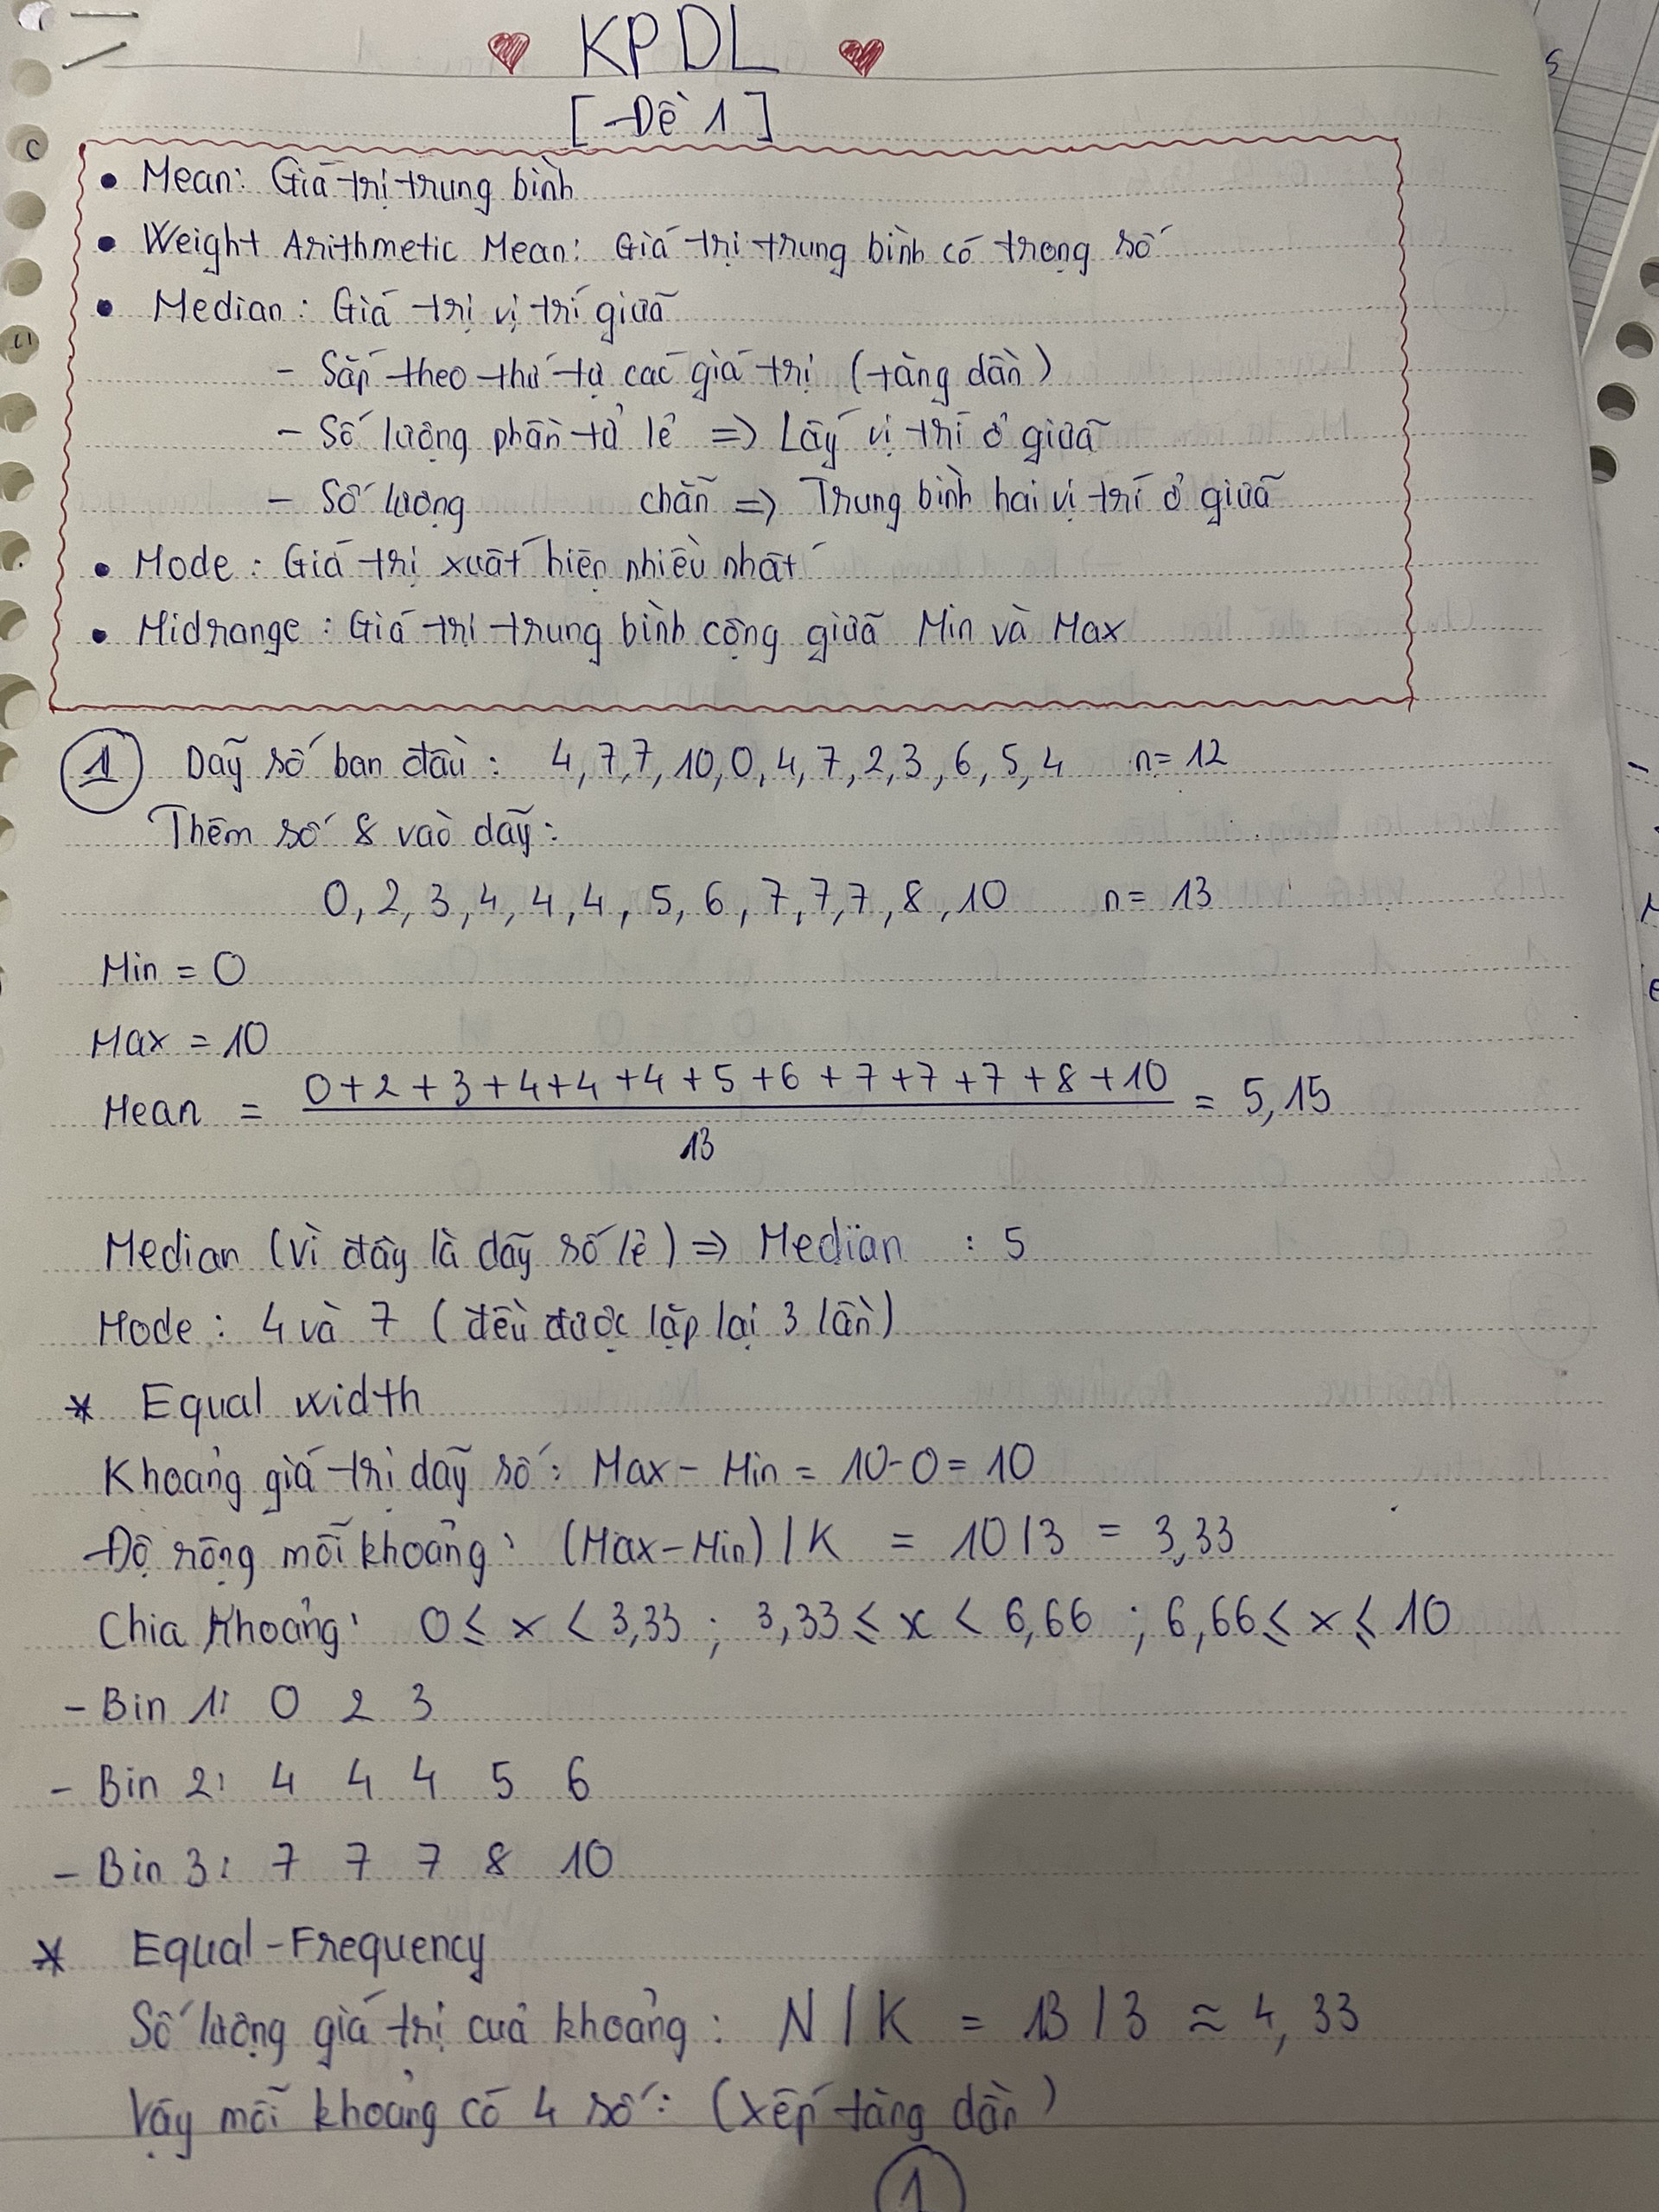 KPDL
[Đề 1]
• Mean: Giá trị trung bình
• Weight Arithmetic Mean: Giá trị trung bình có trọng số
• Median: Giá trị vị trí giữa
- Sắp theo thứ tự các giá trị (tăng dần)
- Số lượng phần tử lẻ => Lấy vị trí ở giữa
- Số lượng chẵn => Trung bình hai vị trí ở giữa
• Mode: Giá trị xuất hiện nhiều nhất
• Midrange: Giá trị trung bình cộng giữa Min và Max
1 Dãy số ban đầu: 4,7,7,10,0,4,7,2,3,6,5,4 n= 12
Thêm số 8 vào dãy:
0,2,3,4,4,4,5,6,7,7,7,8,10 n= 13
Min = 0
Max = 10
Mean = 0+2+3+4+4+4+5+6+7+7+7+8+10 = 5,15
13
Median (vì đây là dãy số lẻ) => Median : 5
Mode: 4 và 7 (đều được lặp lại 3 lần)
* Equal width
Khoảng giá trị dãy số: Max - Min = 10-0 = 10
Độ rộng mỗi khoảng: (Max-Min) / K = 10/3 = 3,33
Chia khoảng: 0 ≤ x < 3,33 ; 3,33 ≤ x < 6,66 ; 6,66 ≤ x ≤ 10
- Bin 1: 0 2 3
- Bin 2: 4 4 4 5 6
- Bin 3: 7 7 7 8 10
* Equal-Frequency
Số lượng giá trị của khoảng: N/K = 13/3 ≈ 4,33
Vậy mỗi khoảng có 4 số: (xếp tăng dần)
1